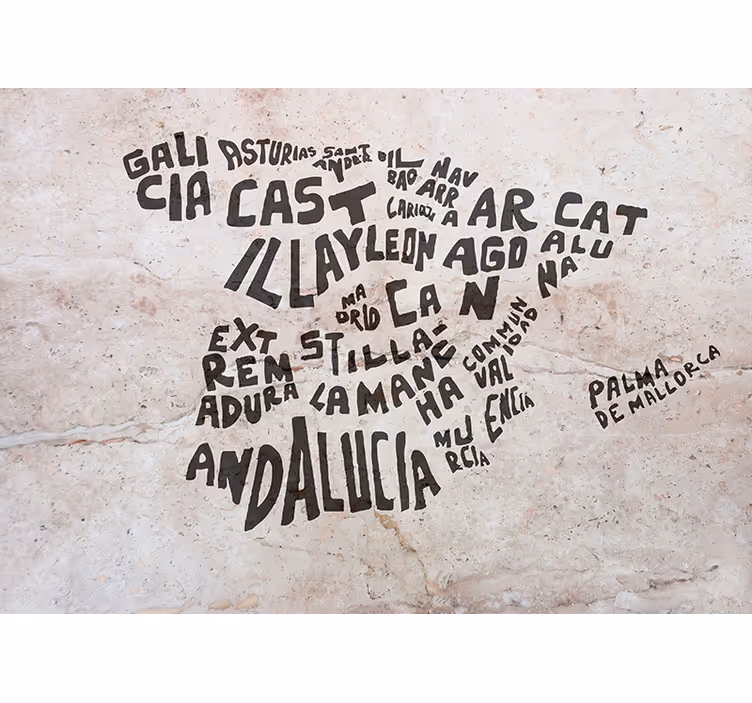 GALI
CIA
ASTURIAS
SANT
ANDER
BIL
BAO
NAV
ARR
A
LARIOJA
CAST
ILLAYLEON
AR
AGO
N
CAT
ALU
NA
MA
DRID
CA
STILLA-
LAMANC
HA
EXT
REM
ADURA
COMMUN
IDAD
VAL
ENCIA
MU
RCIA
ANDALUCIA
PALMA
DE MALLORCA